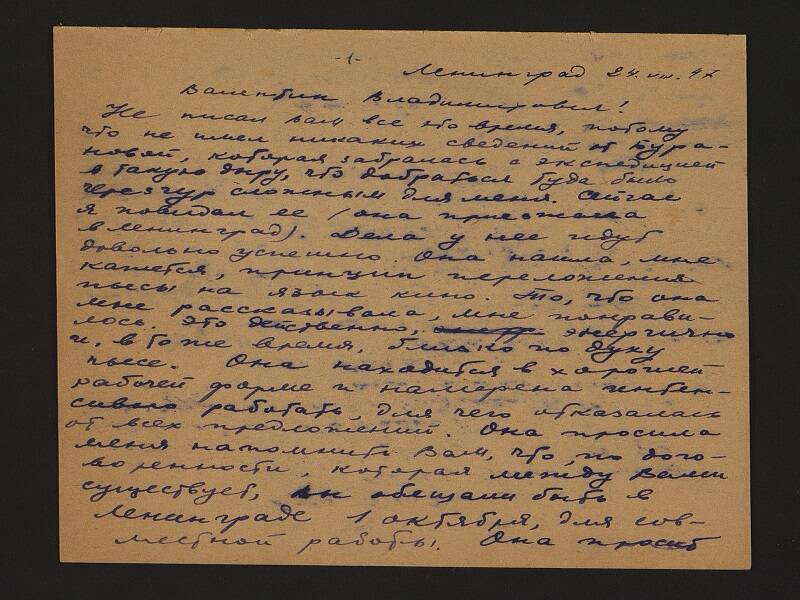 -1-
Ленинград 24.VIII.47
Валентин Владимирович!
Не писал Вам все это время, потому
что не имел никаких сведений от Бура-
новой, которая забралась с экспедицией
в такую дыру, что добраться туда было
черезчур сложным для меня. Сейчас
я повидал ее (она приезжала
в Ленинград). Дела у нее идут
довольно успешно. Она нашла, мне
кажется, принцип переложения
пьесы на язык кино. То, что она
мне рассказывала, мне понрави-
лось. Это действенно, энергично
и, в то же время, близко по духу
пьесе. Она находится в хорошей
рабочей форме и намерена интен-
сивно работать, для чего отказалась
от всех предложений. Она просила
меня напомнить Вам, что, по дого-
воренности, которая между Вами
существует, Вы обещали быть в
Ленинграде 1 октября, для сов-
местной работы. Она просит